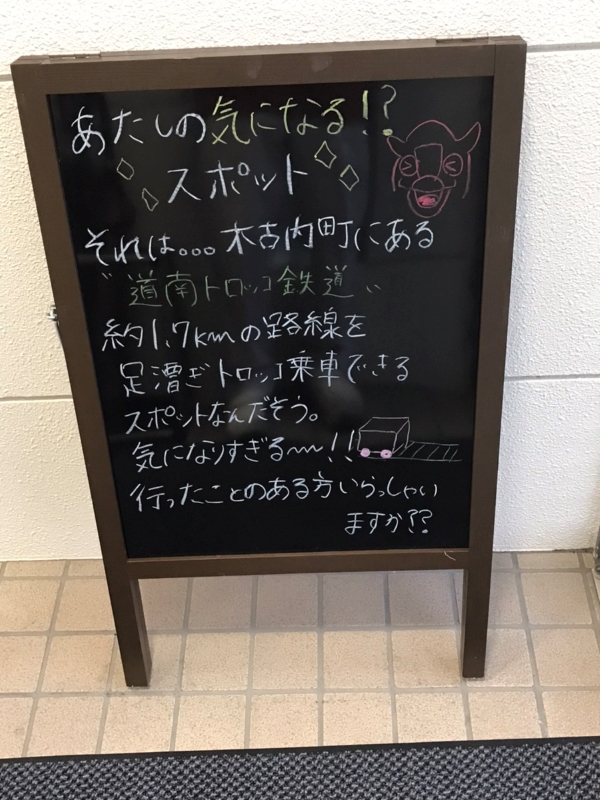 あたしの気になる!?
スポット
それは。。。木古内町にある
〝道南トロッコ鉄道〟
約1.7kmの路線を
足漕ぎトロッコ乗車できる
スポットなんだそう。
気になりすぎる〜!!
行ったことのある方いらっしゃい
ますか??